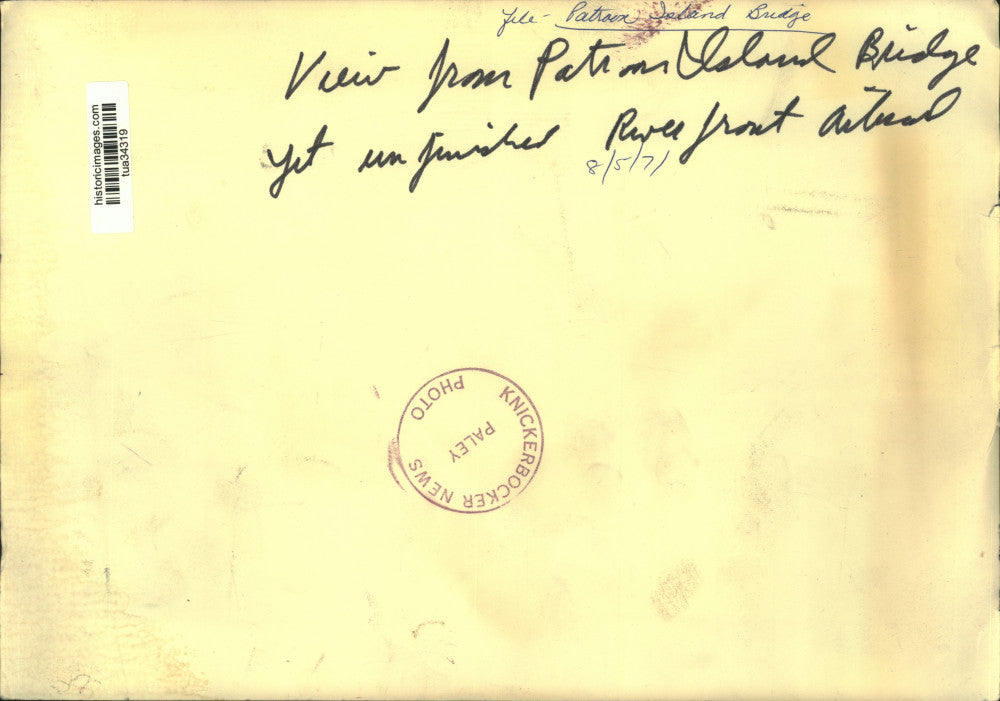 File - Patroon Island Bridge
View from Patroon Island Bridge
yet unfinished Riverfront Arterial
8/5/71
historicimages.com
tua34319
KNICKERBOCKER NEWS
PHOTO
PALEY